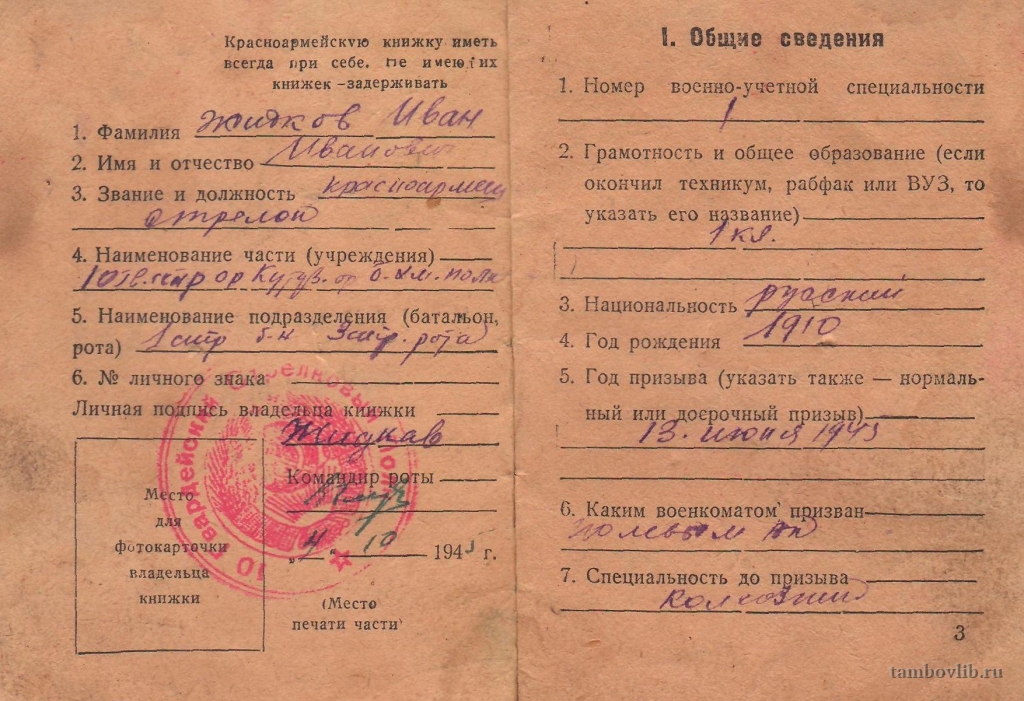 Красноармейскую книжку иметь
всегда при себе. Не имеющих
книжек -задерживать
1. Фамилия Жидков Иван
2. Имя и отчество Иванович
3. Звание и должность красноармеец
стрелок
4. Наименование части (учреждения)
10 гв. стр ор Кутуз. полк
5. Наименование подразделения (батальон,
рота) 1 стр б-н 3 стр. рота
6. № личного знака
Личная подпись владельца книжки
Жидкав
Командир роты
„4“ 10 1945 г.
Место
для
фотокарточки
владельца
книжки
(Место
печати части)
10 Гвардейский Стрелковый Полк
I. Общие сведения
1. Номер военно-учетной специальности
1
2. Грамотность и общее образование (если
окончил техникум, рабфак или ВУЗ, то
указать его название)
1 кл.
3. Национальность русский
4. Год рождения 1910
5. Год призыва (указать также — нормаль-
ный или досрочный призыв)
13. июня 1943
6. Каким военкоматом призван
полевым
7. Специальность до призыва
колхозник
3
tambovlib.ru